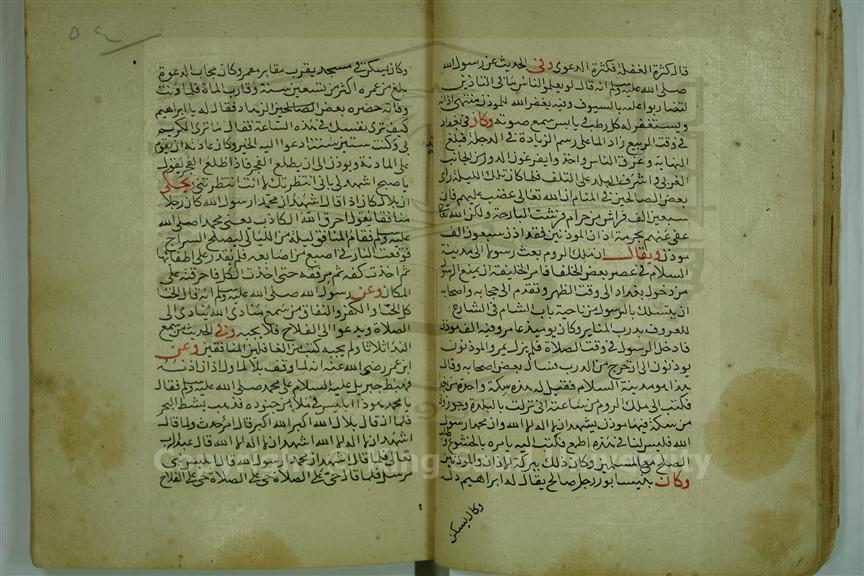 قال كثرة الغفلة فكثرة الدعوى وفي الحديث عن رسول الله
صلى الله عليه وسلم انه قال لو يعلم الناس ما في التاذين
لتضاربوا عليه بالسيوف وفيه يغفر الله للموذن منتهى اذانه
ويستغفر له كل رطب ويابس سمع صوته وكان في بغداد
في وقت الربيع زاد الما على رسم الزيادة في الدجلة فبلغ
النهاية وغرق الناس واخذ الدور من الجانب
الغربي فاشرف البلد على التلف فلما كان تلك الليلة راى
بعض الصالحين في المنام ان الله تعالى غضب عليهم فان
سبعين الف فراش من حرام فرشت البارحة ولكن الله تعالى
عفى عنهم بحرمة اذان الموذنين فقد اذن سبعون الف
موذن ويقال ان ملك الروم بعث رسولا الى مدينة
السلام في عصر بعض الخلفا فامر الخليفة ان يمنع الرسول
من دخول بغداد الى وقت الظهر وتقدم الى حجابه واصحابه
ان يتمسك بالرسول من ناحية باب الشام في الشارع
المعروف بدرب المنابر وكان يوميذ عامر وفيه الف موذن
فادخل الرسول في وقت الصلاة فلم يزل يمر والموذنون
يوذنون الى ان خرج من الدرب فسال بعض اصحابه وقال
هذا هو مدينة السلام فقيل له هذه سكة واحدة من
فكتب الى ملك الروم من ساعته اني نزلت بالبلدة وجوزت
من سكة فيها موذن يشهد ان لا اله الا الله وان محمدا رسول
الله فليس لنا في هذه اطمع فكتب اليه يامره بالخشوع و
الصلح مع المسلمين وكان ذلك ببركة الاذان والموذنين
وكان بنيسابور رجل صالح يقال له ابراهيم
وكان يسكن
وكان يسكن في مسجد بقرب مقابر معمر وكان مجاب الدعوة
بلغ من عمره اكثر من تسعين سنة وقارب الماة فلما دنت
وفاته حضره بعض الصالحين الزهاد فقال له يا ابراهيم
كيف ترى نفسك في هذه الساعة فقال ما ترى الكريم
بي وكنت ستين سنة ادعوا اليه الخير وكان عادته ان يقوم
على المادنة ويوذن الى ان يطلع الفجر فاذا طلع الفجر يقول
يا صبح اشهد لي باني انتظرتك ما انت انتظرتني ويحكى
ان بلالا كان اذا قال اشهد ان محمدا رسول الله كان رجلا
منافقا يقول احرق الله الكاذب يعني محمدا صلى الله
عليه وسلم فقام المنافق ليلة من الليالي ليصلح السراج
فوقعت النار في اصبع من اصابعه فلم يقدر على اطفائها
ثم اخذت كفه ثم مرفقه حتى اخذت الكل فاحرقته على
المكان وعن رسول الله صلى الله عليه وسلم انه قال الجفا
كل الجفا والكفر والنفاق من سمع منادي الله ينادي الى
الصلاة ويدعوا الى الفلاح فلا يجيبه وفي الحديث من سمع
الندا ثلاثا ولم يجبه كتب من الغافلين المنافقين وعن
ابن عمر رضي الله عنه انه لما وقف بلال اول ما اذن اذانه
فهبط جبريل عليه السلام على محمد صلى الله عليه وسلم فقال
يا محمد هوذا ابليس في ملا من جنوده قد ذهب بشط البحر
فلما اذن قال بلال الله اكبر الله اكبر قال امر حدث ولما قال
اشهد ان لا اله الا الله اشهد ان لا اله الا الله قال عبد الرب
تعالى فلما قال اشهد ان محمدا رسول الله قال ابليس نبي
مرسل فلما قال حي على الصلاة حي على الصلاة حي على الفلاح